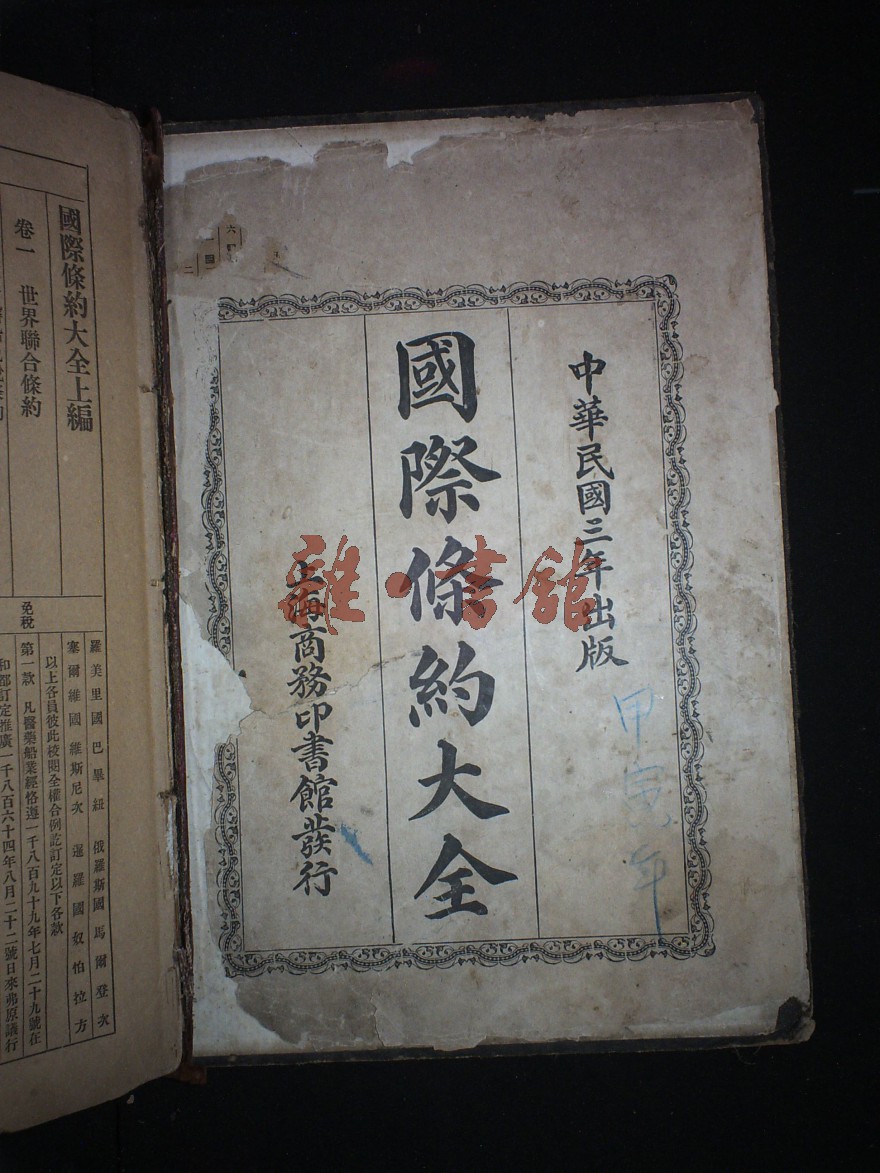 中華民國三年出版
國際條約大全
上海商務印書館發行
甲寅年
雜·書館
六
一
二
國際條約大全上編
卷一 世界聯合條約
免稅
羅美里國巴畢紐 俄羅斯國馬爾登次
塞爾維國維斯尼次 暹羅國奴怕拉方
以上各員彼此校閱全權合例訖訂定以下各款
第一款 凡醫藥船業經恪遵一千八百九十九年七月二十九號在
和都訂定推廣一千八百六十四年八月二十二號日來弗原議行